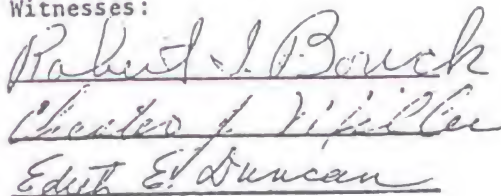 Witnesses:
Robert I. Bouck
Charles J. Miller
Edith E. Duncan